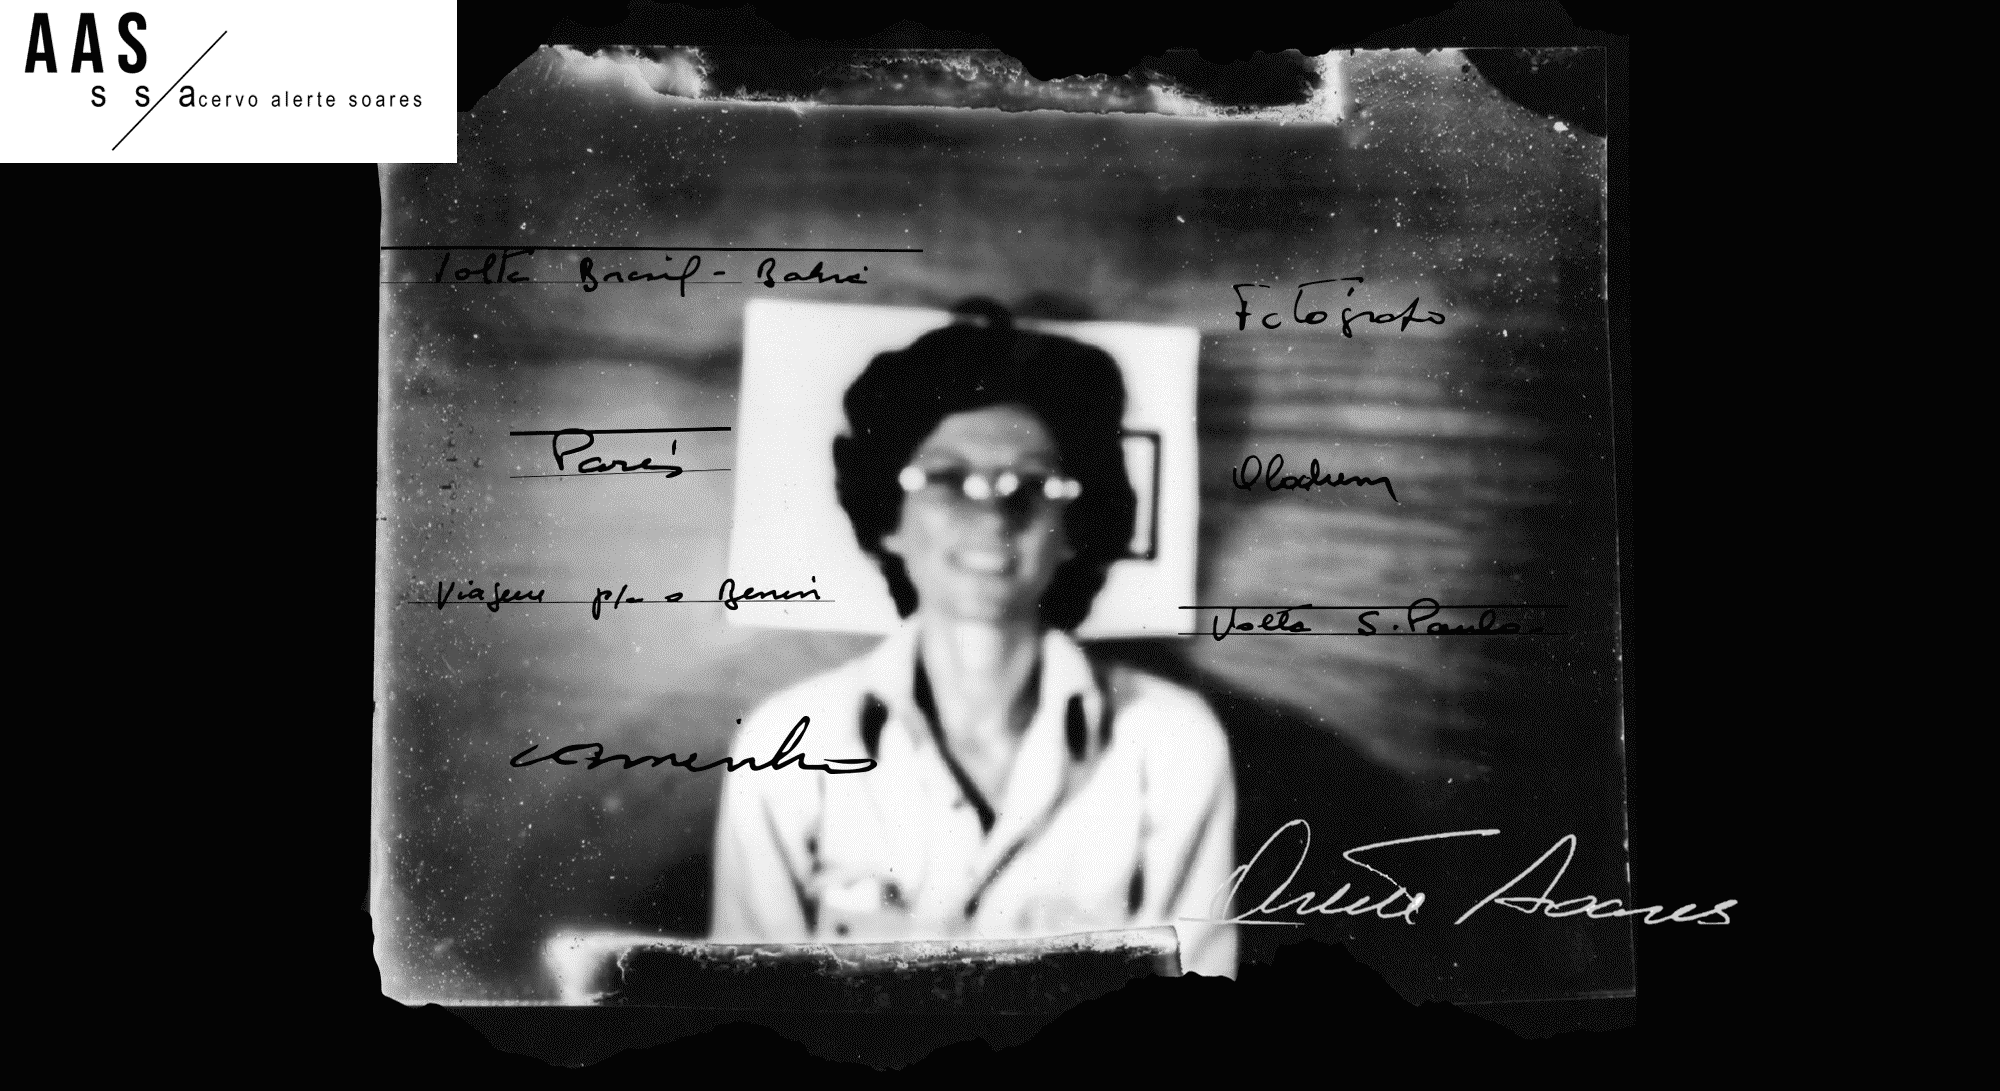 AAS
s s acervo alerte soares
Volta Brasil - Bahia
Fotógrafo
Paris
Olodum
Viagem p/a o Benin
Volta S. Paulo
caminho
Arlete Soares